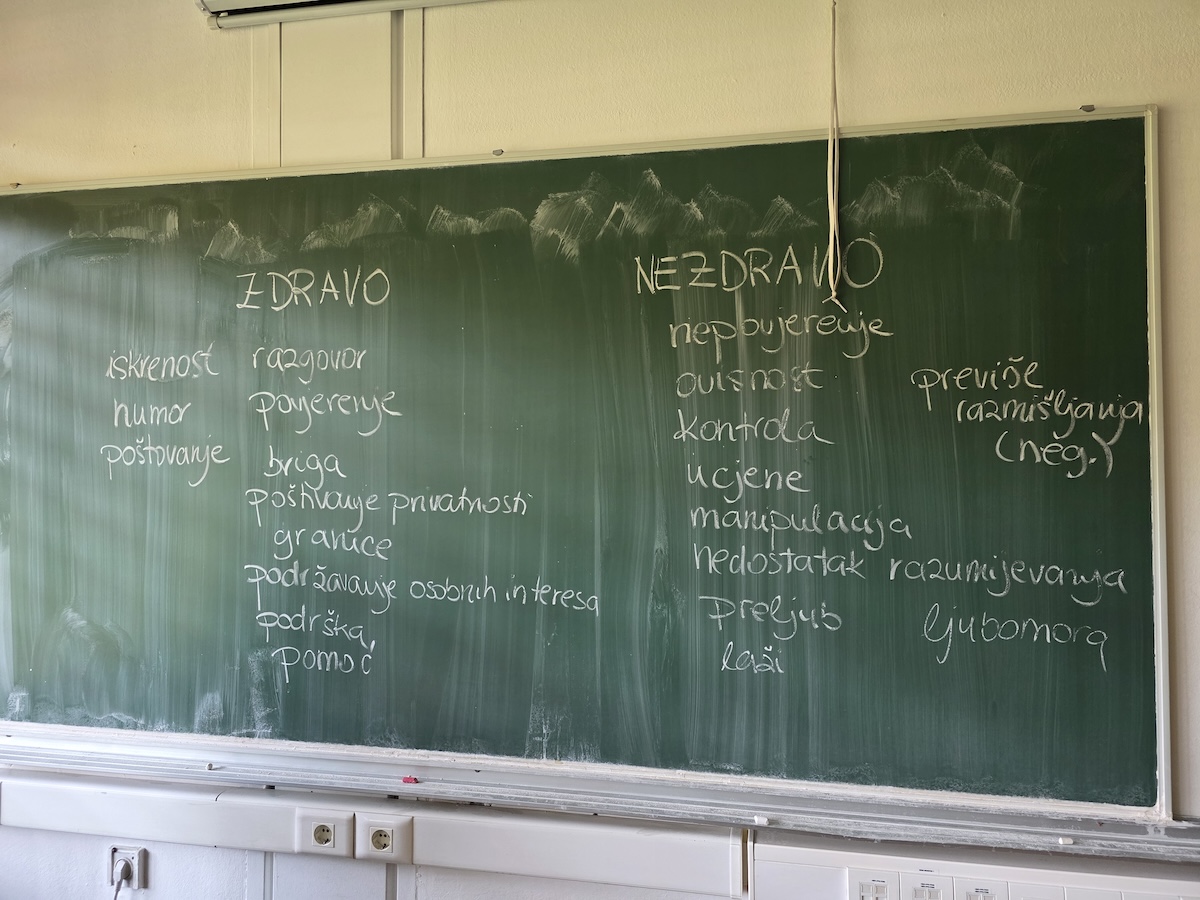 ZDRAVO
iskrenost razgovor
humor povjerenje
poštovanje briga
poštivanje privatnosti
granice
podržavanje osobnih interesa
podrška,
pomoć
NEZDRAVO
nepovjerenje
ovisnost
kontrola
ucjene
manipulacija
nedostatak razumijevanja
preljub
laži
previše
razmišljanja
(neg.)
ljubomora